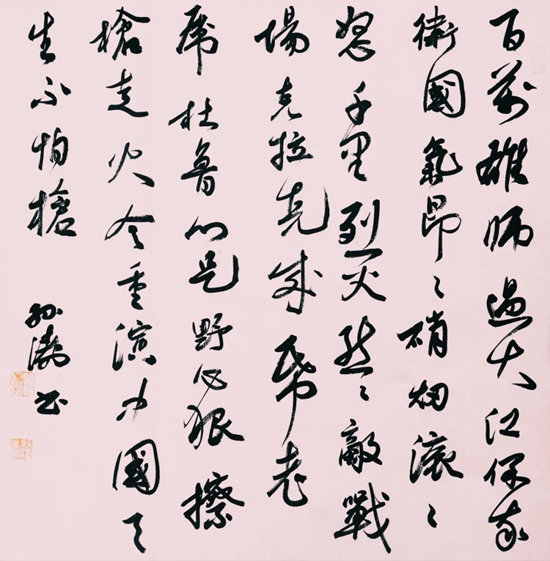 百萬雄師過大江保家
衛國氣昂〻硝烟滾〻
怒千里列火〻敵戰
場克拉克成帋老
虎杜魯門是野心狼擦
槍走火今重演中國人
生不怕槍
書